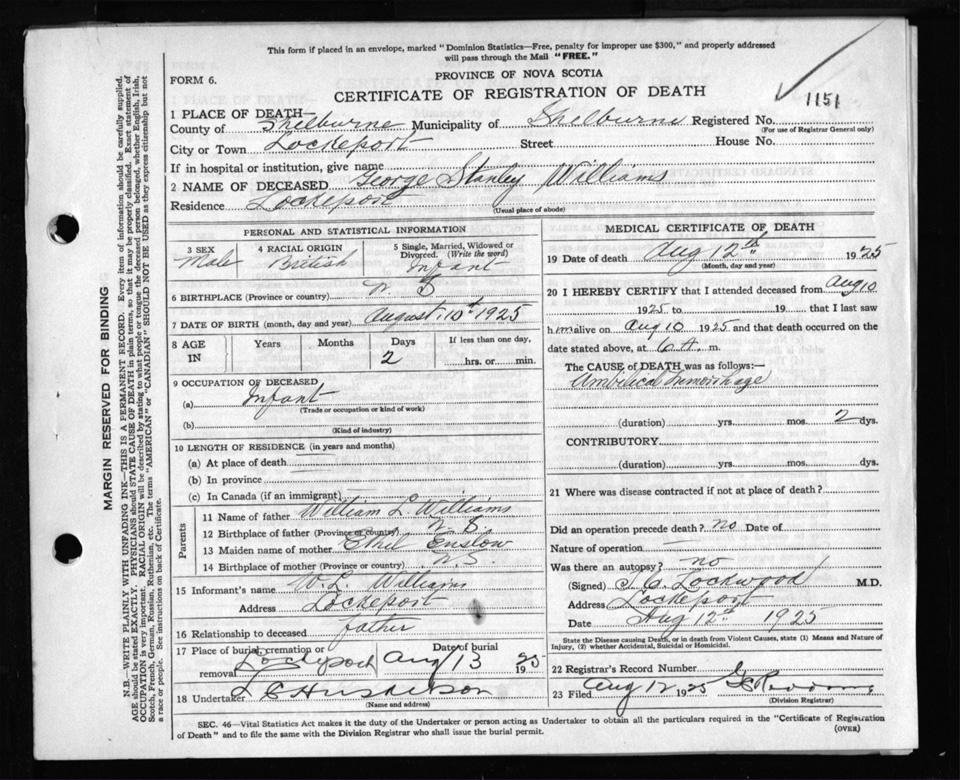 This form if placed in an envelope, marked "Dominion Statistics—Free, penalty for improper use $300," and properly addressed
will pass through the Mail "FREE."
PROVINCE OF NOVA SCOTIA
FORM 6.
CERTIFICATE OF REGISTRATION OF DEATH
1151
1 PLACE OF DEATH—
County of Shelburne Municipality of Shelburne Registered No.
(For use of Registrar General only)
City or Town Lockeport Street House No.
If in hospital or institution, give name
2 NAME OF DECEASED George Stanley Williams
Residence Lockeport
(Usual place of abode)
PERSONAL AND STATISTICAL INFORMATION
3 SEX Male
4 RACIAL ORIGIN British
5 Single, Married, Widowed or Divorced. (Write the word) Infant
6 BIRTHPLACE (Province or country) N. S
7 DATE OF BIRTH (month, day and year) August 10th 1925
8 AGE IN Years Months Days 2 If less than one day, hrs. or min.
9 OCCUPATION OF DECEASED
(a) Infant
(Trade or occupation or kind of work)
(b)
(Kind of industry)
10 LENGTH OF RESIDENCE (in years and months)
(a) At place of death
(b) In province
(c) In Canada (if an immigrant)
Parents
11 Name of father William L. Williams
12 Birthplace of father (Province or country) N. S.
13 Maiden name of mother Ethel Enslow
14 Birthplace of mother (Province or country) N. S.
15 Informant's name W. L. Williams
Address Lockeport
16 Relationship to deceased father
17 Place of burial, cremation or removal Lockeport Date of burial Aug 13 1925
18 Undertaker L C
(Name and address)
MEDICAL CERTIFICATE OF DEATH
19 Date of death Aug 12th 1925
(Month, day and year)
20 I HEREBY CERTIFY that I attended deceased from Aug 10
1925 to 19 that I last saw
him alive on Aug 10 1925 and that death occurred on the
date stated above, at 6 A. m.
The CAUSE OF DEATH was as follows:—
(duration) yrs. mos. 2 dys.
CONTRIBUTORY
(duration) yrs. mos. dys.
21 Where was disease contracted if not at place of death?
Did an operation precede death? no Date of
Nature of operation —
Was there an autopsy? no
(Signed) Lockwood M.D.
Address Lockeport
Date Aug 12th 1925
State the Disease causing Death, or in death from Violent Causes, state (1) Means and Nature of
Injury, (2) whether Accidental, Suicidal or Homicidal.
22 Registrar's Record Number
23 Filed Aug 12 1925
(Division Registrar)
SEC. 46—Vital Statistics Act makes it the duty of the Undertaker or person acting as Undertaker to obtain all the particulars required in the "Certificate of Registration
of Death" and to file the same with the Division Registrar who shall issue the burial permit.
(OVER)
MARGIN RESERVED FOR BINDING
N.B.—WRITE PLAINLY WITH UNFADING INK—THIS IS A PERMANENT RECORD. Every item of information should be carefully supplied.
AGE should be stated EXACTLY. PHYSICIANS should STATE CAUSE OF DEATH in plain terms, so that it may be properly classified. Exact statement of
OCCUPATION is very important. RACIAL ORIGIN will be described by stating to what people or tongue the deceased person belonged, whether English, Irish,
Scotch, French, German, Russian, Ruthenian, etc. The terms "AMERICAN" or "CANADIAN" SHOULD NOT BE USED as they express citizenship but not
a race or people. See instructions on back of Certificate.